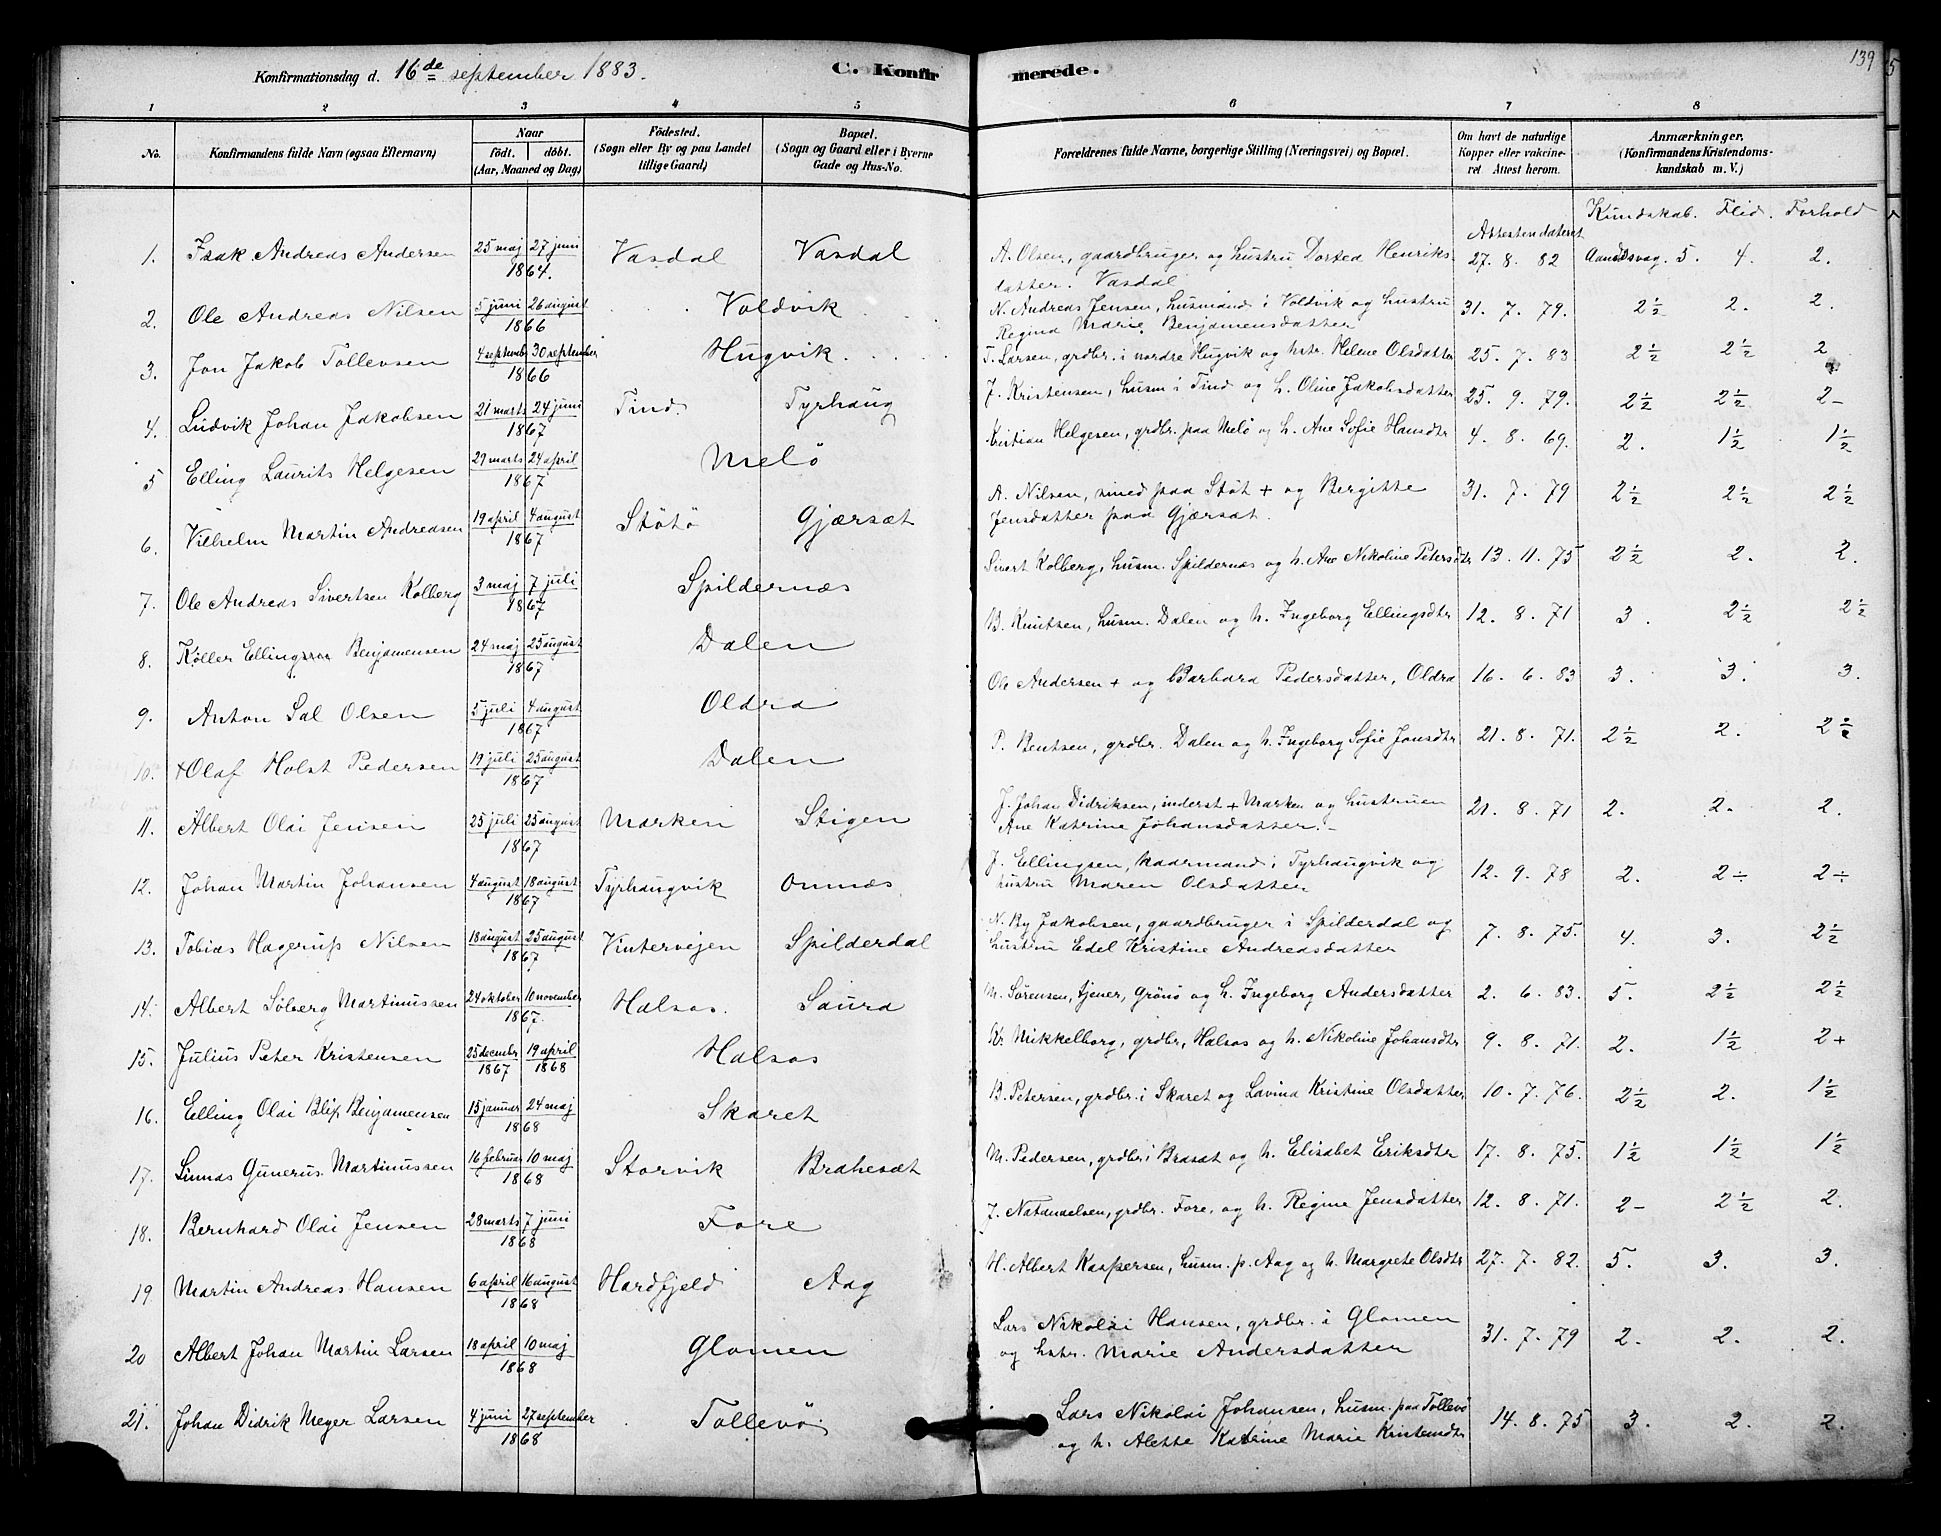 139
Konfirmationsdag d. 16de september 1883.
C. Konfirmerede.
1 2 3 4 5 6 7 8
No. Konfirmandens fulde Navn (ogsaa Efternavn) Naar født. døbt. (Aar, Maaned og Dag) Fødested. (Sogn eller By og paa Landet tillige Gaard) Bopæl. (Sogn og Gaard eller i Byerne Gade og Hus-No. Forældrenes fulde Navne, borgerlige Stilling (Næringsvei) og Bopæl. Om havt de naturlige Kopper eller vakcineret Attest herom. Anmærkninger. (Konfirmandens Kristendomskundskab m. V.)
Attesten dateret Kundskab. Flid. Forhold
1. Isak Andreas Andersen 25 maj 27 juni 1864. Vasdal Vasdal A. Olsen, gaardbruger og hustru Dortea Henriksdatter. Vasdal 27. 8. 82 Aandssvag. 5. 4. 2.
2. Ole Andreas Nilsen 5 juni 26 august 1866 Voldvik N. Andreas Jensen, husmand i Voldvik og hustru Regina Marie Benjamensdatter 31. 7. 79. 2½ 2. 2.
3. Jon Jakob Tollevsen 4 septemb 30 september 1866 Hugvik T. Larsen, grdbr. i nordre Hugvik og hstr. Helene Olsdatter 25. 7. 83 2½ 2½ 2
4. Ludvik Johan Jakobsen 21 marts 24 juni 1867 Tind. Tyrhaug J. Kristensen, husm i Tind og h. Oline Jakobsdatter 25. 9. 79. 2½ 2½ 2-
5 Elling Laurits Helgesen 29 marts 24 april 1867 Melö Kristian Helgesen, grdbr. paa Melö og h. Ane Sofie Hansdtr 4. 8. 69. 2. 1½ 1½
6. Vilhelm Martin Andreasen 19 april 4 august 1867 Stötö Gjærsæt A. Nilsen, smed paa Stöt + og Bergitte Jensdatter paa Gjærsæt. 31. 7. 79 2½ 2½ 2½
7. Ole Andreas Sivertsen Kolberg 3 maj 7 juli 1867 Spildernæs Sivert Kolberg, husm. Spildernæs og h. Ane Nikoline Petersdtr 13. 11. 75 2½ 2. 2.
8. Køller Ellingsen Benjamensen 24 maj 25 august 1867 Dalen B. Knutsen, husm. Dalen og h. Ingeborg Ellingsdtr 12. 8. 71 3. 2½ 2½
9. Anton Sal Olsen 5 juli 4 august 1867 Oldra Ole Andersen + og Barbara Pedersdatter, Oldra 16. 6. 83 3. 3. 3.
10. +Olaf Holst Pedersen 19 juli 25 august 1867 Dalen P. Bentsen, grdbr. Dalen og h. Ingeborg Sofie Jonsdtr 21. 8. 71. 2½ 2. 2½
11. Albert Olai Jensen 25 juli 25 august 1867 Marken Stigen J. Johan Didriksen, inderst + Marken og hustruen Ane Katrine Johansdatter. 21. 8. 71 2. 2. 2.
12. Johan Martin Johansen 4 august 18 august 1867 Tyrhaugvik Onnæs J. Ellingsen, kaarmand i Tyrhaugvik og hustru Maren Olsdatter 12. 9. 78 2. 2÷ 2÷
13. Tobias Hagerup Nilsen 18 august 25 august 1867 Vintervejen Spilderdal N. By Jakobsen, gaardbruger i Spilderdal og hustru Edel Kristine Andreasdatter 7. 8. 75. 4. 3. 2½
14. Albert Solberg Martinussen 24 oktober 10 november 1867. Halsos. Saura M. Sørensen, tjener, Grönö og h. Ingeborg Andersdatter 2. 6. 83. 5. 2½ 2½
15. Julius Peter Kristensen 25 december 1867 19 april 1868 Halsos Kr Mikkelborg, grdbr, Halsos og h. Nikoline Johansdtr 9. 8. 71. 2. 1½ 2+
16. Elling Olai Blix Benjamensen 15 januar 24 maj 1868 Skaret B. Petersen, grdbr. i Skaret og Lavina Kristine Olsdatter 10. 7. 76. 2½ 2. 1½
17. Linnæs Gunerus Martinussen 16 februar 10 maj 1868 Storvik Brahesæt M. Pedersen, grdbr i Brasæt og h. Elisabet Eriksdtr 17. 8. 75. 1½ 1½ 1½
18. Bernhard Olai Jensen 28 marts 7 juni 1868 Fore J. Natanaelsen, grdbr. Fore. og h. Regine Jensdatter 12. 8. 71. 2- 2½ 2.
19 Martin Andreas Hansen 6 april 16 august 1868 Hardfjeld Aag H. Albert Kaspersen, husm. p. Aag og h. Margrete Olsdtr 27. 7. 82. 5. 3. 3.
20 Albert Johan Martin Larsen 18 april 10 maj 1868 Glomen Lars Nikolai Hansen, grdbr. i Glomen og hstr. Marie Andersdatter 31. 7. 79 2. 2. 2.
21. Johan Didrik Meyer Larsen 4 juni 27 september 1868 Tollevö Lars Nikolai Johansen, husm. paa Tollevö og h. Alette Katrine Marie Kristensdtr 14. 8. 75 3. 2. 2.